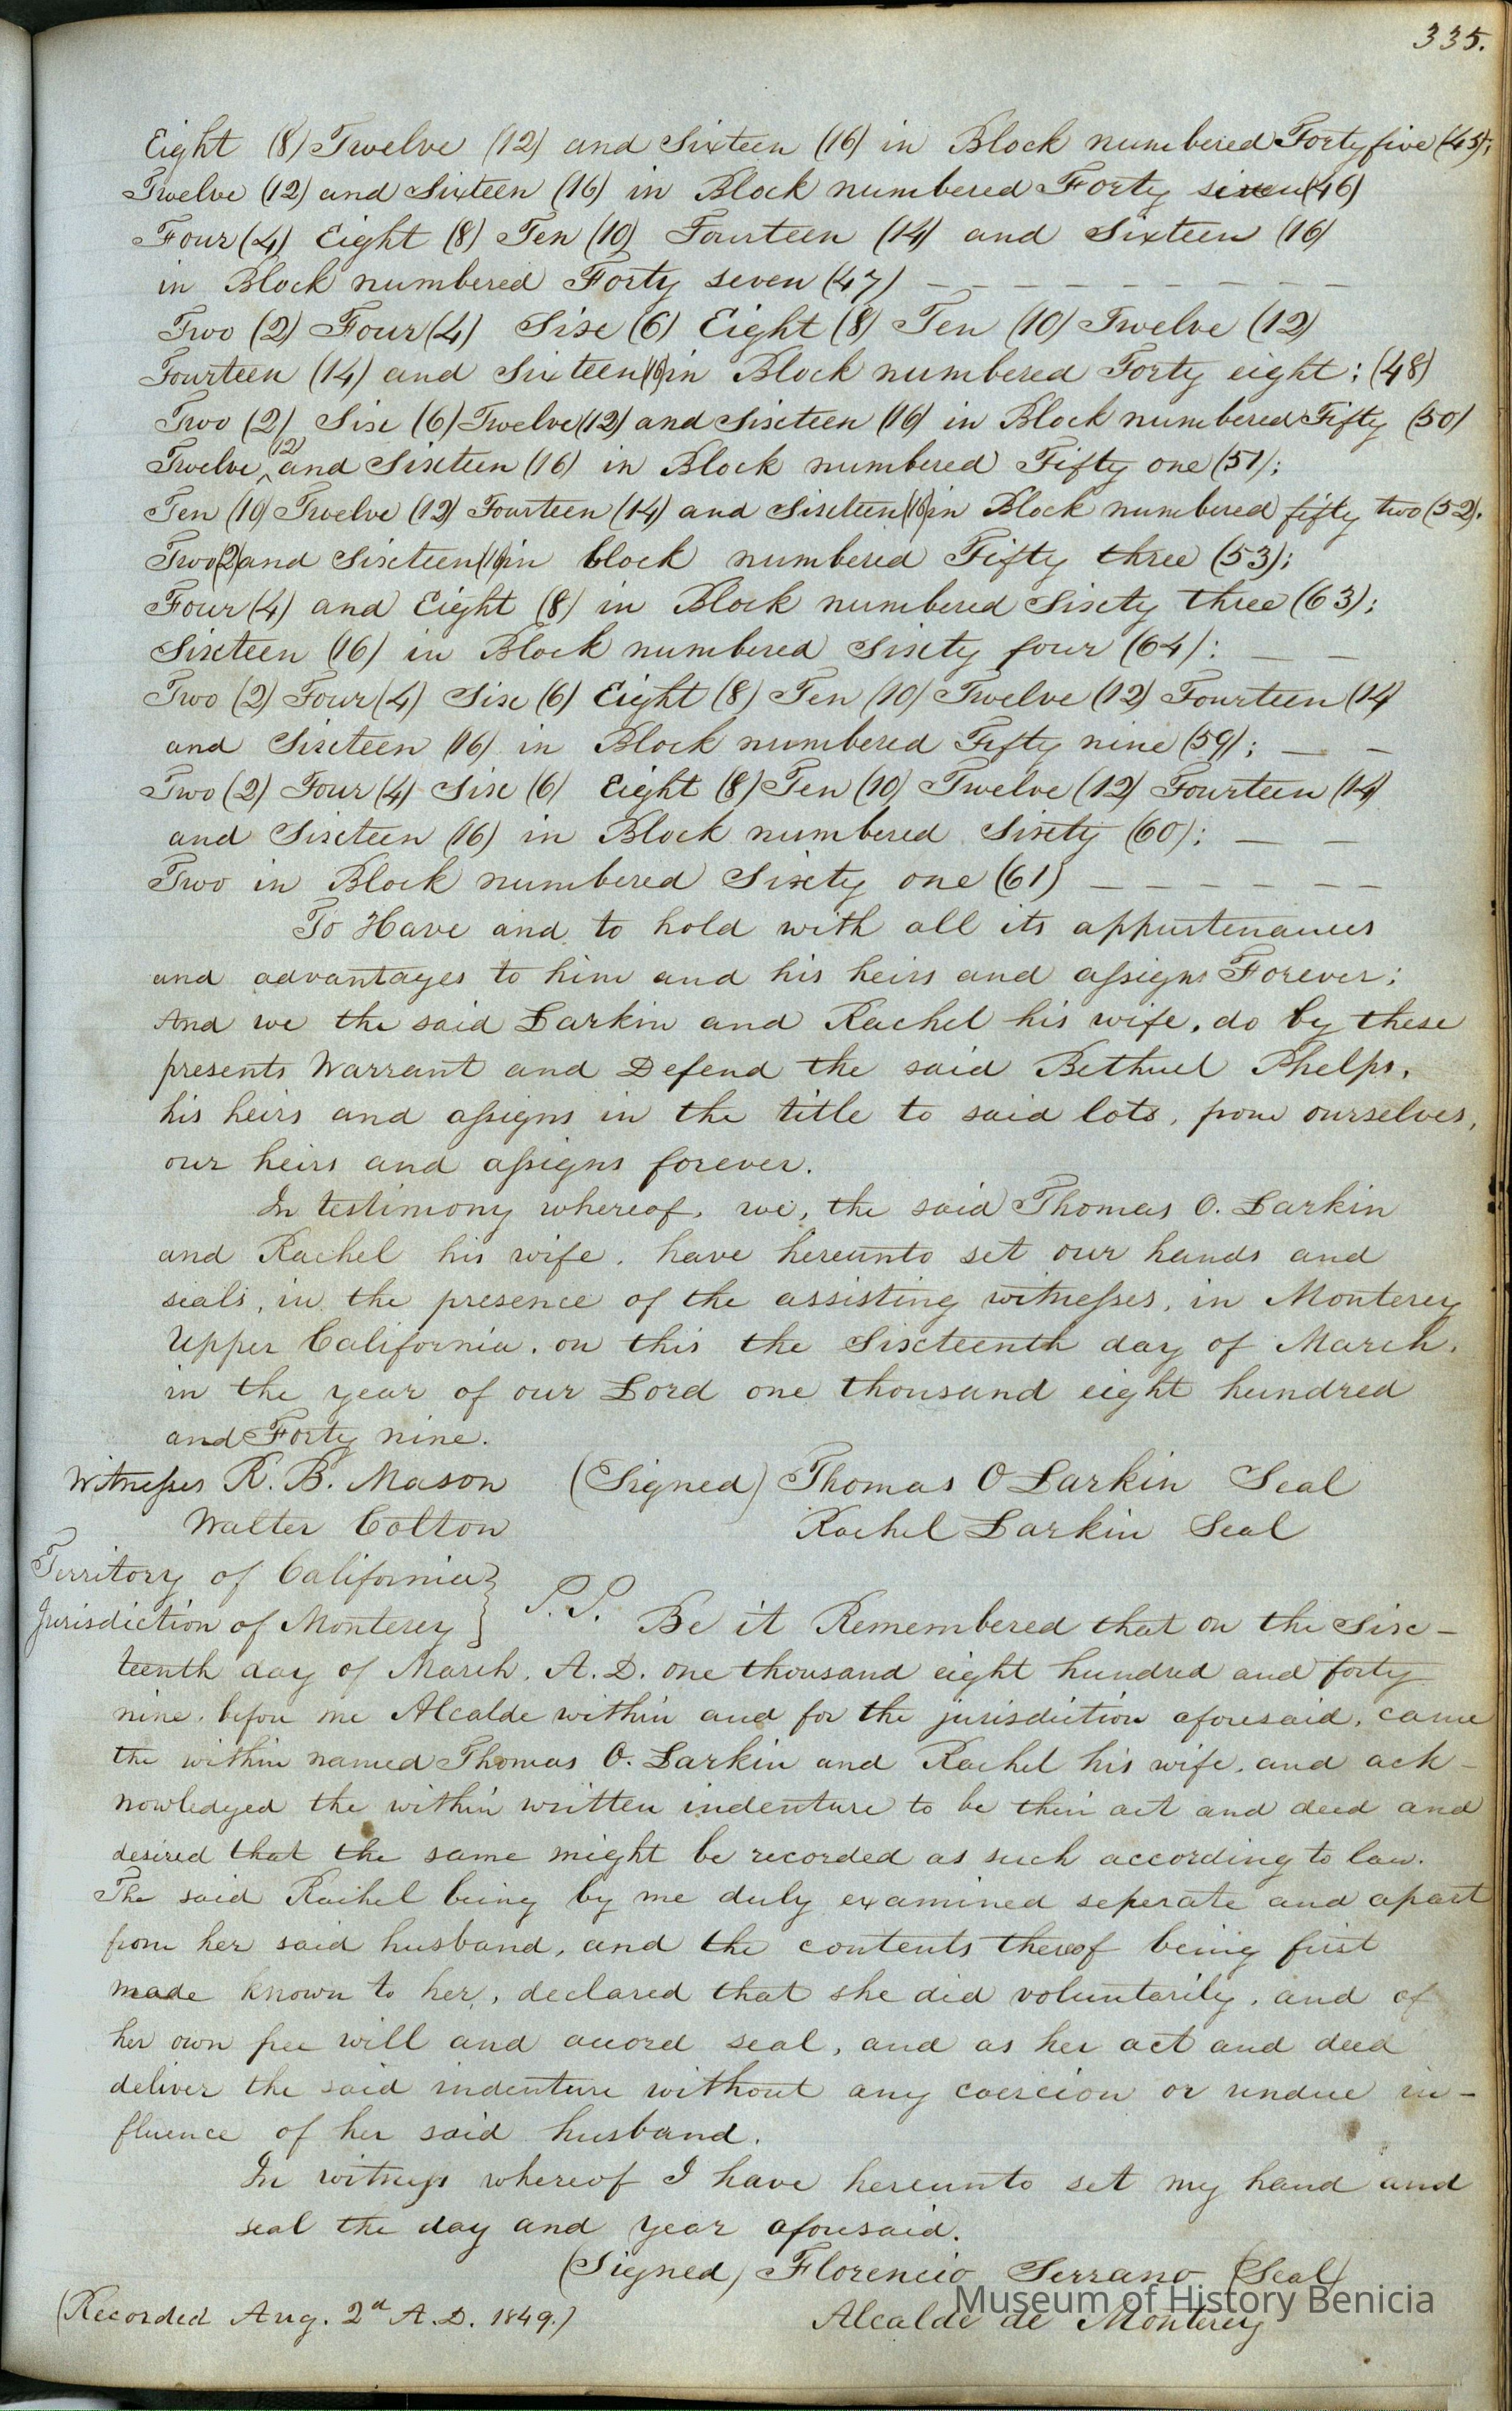 335.
Eight (8) Twelve (12) and Sixteen (16) in Block numbered Forty five (45);
Twelve (12) and Sixteen (16) in Block numbered Forty (46)
Four (4) Eight (8) Ten (10) Fourteen (14) and Sixteen (16)
in Block numbered Forty seven (47) — — — — — — — — —
Two (2) Four (4) Six (6) Eight (8) Ten (10) Twelve (12)
Fourteen (14) and Sixteen (16) in Block numbered Forty eight; (48)
Two (2) Six (6) Twelve (12) and Sixteen (16) in Block numbered Fifty (50)
Twelve (12) and Sixteen (16) in Block numbered Fifty one (51);
Ten (10) Twelve (12) Fourteen (14) and Sixteen (16) in Block numbered fifty two (52).
Two (2) and Sixteen (16) in block numbered Fifty three (53);
Four (4) and Eight (8) in Block numbered Sixty three (63);
Sixteen (16) in Block numbered Sixty four (64); — —
Two (2) Four (4) Six (6) Eight (8) Ten (10) Twelve (12) Fourteen (14)
and Sixteen (16) in Block numbered Fifty nine (59); — —
Two (2) Four (4) Six (6) Eight (8) Ten (10) Twelve (12) Fourteen (14)
and Sixteen (16) in Block numbered Sixty (60); — —
Two in Block numbered Sixty one (61) — — — — — —
To Have and to hold with all its appurtenances
and advantages to him and his heirs and assigns Forever;
And we the said Larkin and Rachel his wife, do by these
presents Warrant and Defend the said Bethuel Phelps,
his heirs and assigns in the title to said lots, from ourselves,
our heirs and assigns forever.
In testimony whereof, we, the said Thomas O. Larkin
and Rachel his wife, have hereunto set our hands and
seals, in the presence of the assisting witnesses, in Monterey
Upper California, on this the Sixteenth day of March,
in the year of our Lord one thousand eight hundred
and Forty nine.
Witnesses R. B. Mason (Signed) Thomas O Larkin Seal
Walter Colton Rachel Larkin Seal
Territory of California }
Jurisdiction of Monterey } S.S. Be it Remembered that on the Six-
teenth day of March, A.D. one thousand eight hundred and forty
nine, before me Alcalde within and for the jurisdiction aforesaid, came
the within named Thomas O. Larkin and Rachel his wife, and ack-
nowledged the within written indenture to be their act and deed and
desired that the same might be recorded as such according to law.
The said Rachel being by me duly examined seperate and apart
from her said husband, and the contents thereof being first
made known to her, declared that she did voluntarily, and of
her own free will and accord seal, and as her act and deed
deliver the said indenture without any coercion or undue in-
fluence of her said husband.
In witness whereof I have hereunto set my hand and
seal the day and year aforesaid.
(Signed) Florencio Serrano (Seal)
(Recorded Aug. 2d A.D. 1849.) Alcalde de Monterey
Museum of History Benicia